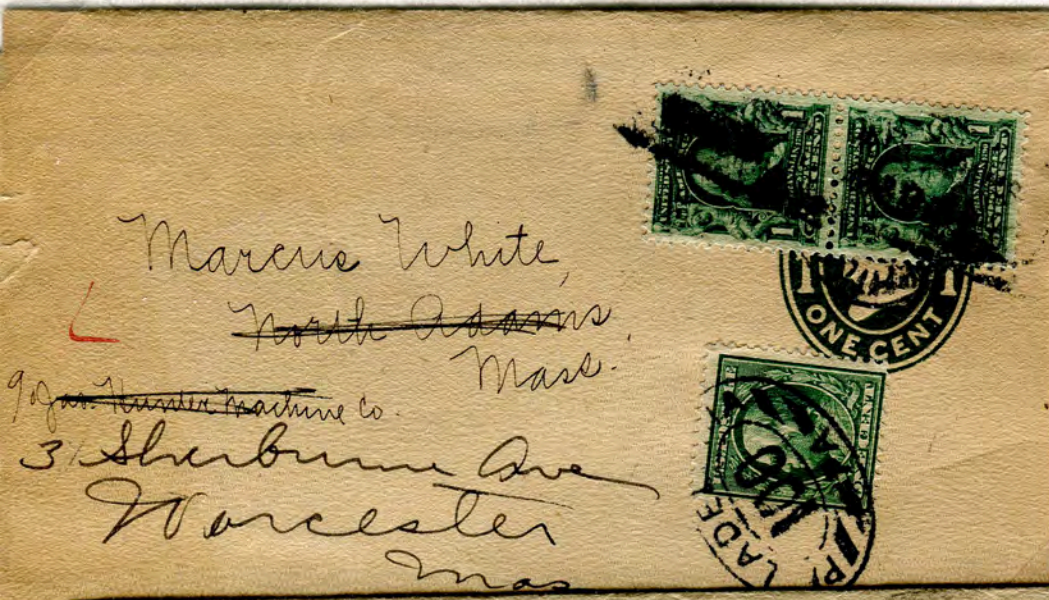 Marcus White,
North Adams
Mass.
℅ Jas. Hunter Machine Co.
3 Sherburne Ave
Worcester
Mas
1 1
1 ONE CENT 1
PHILADE PA